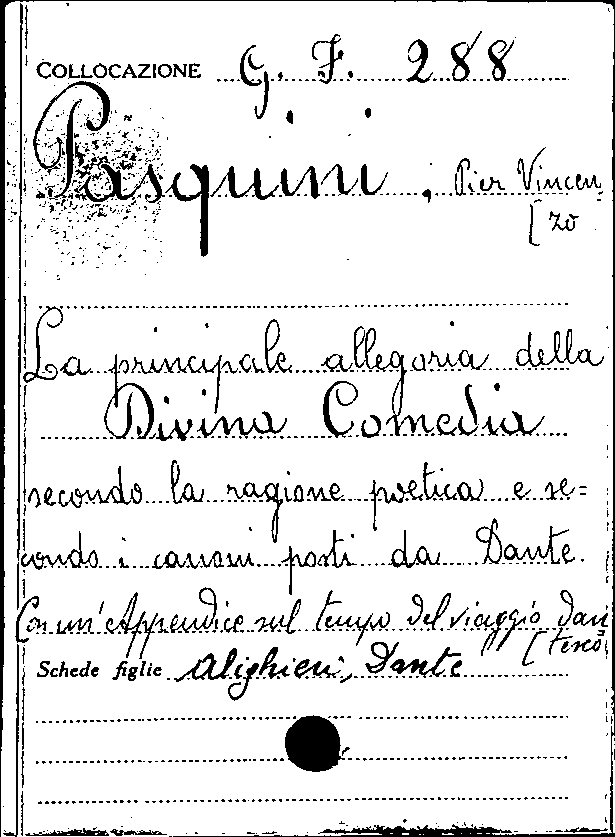 COLLOCAZIONE G. F. 288
Pasquini, Pier Vincen=
[zo
La principale allegoria della
Divina Comedia
secondo la ragione poetica e se=
condo i canoni posti da Dante.
Con un'Appendice sul tempo del viaggio dan=
[tesco
Schede figlie Alighieri, Dante